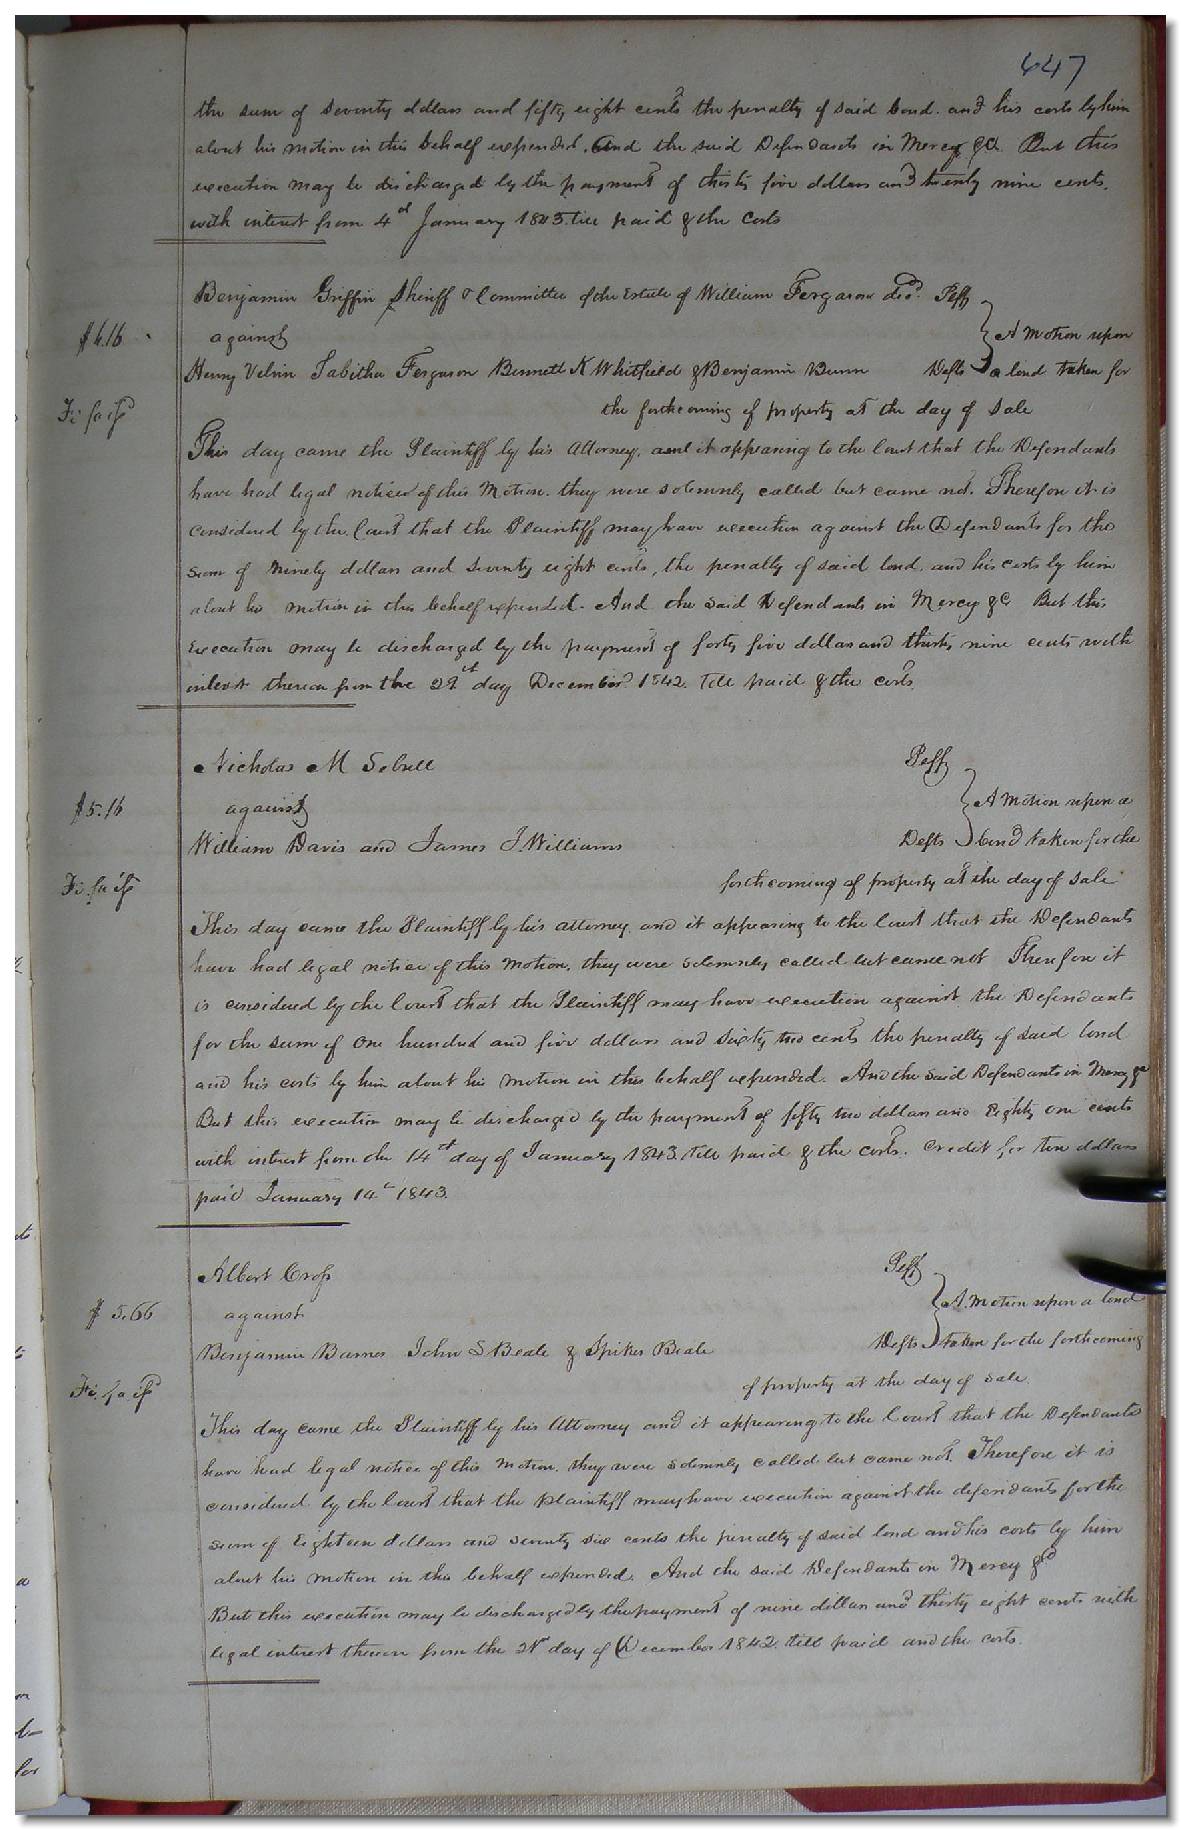 447
the sum of Seventy dollars and fifty eight cents the penalty of said bond. and his costs by him
about his motion in this behalf expended. And the said Defendants in Mercy &c. But this
execution may be discharged by the payment of thirty five dollars and twenty nine cents.
with interest from 4th January 1843. till paid & the costs
Benjamin Griffin Sheriff & Committee of the Estate of William Ferguson decd. Plff
$6.16
against
A Motion upon
Henry Velvin Tabitha Ferguson Bennett K Whitfield & Benjamin Bunn Defts
a bond taken for
Fi fa
the forthcoming of property at the day of Sale
This day came the Plaintiff by his Attorney, and it appearing to the Court that the Defendants
have had legal notice of this Motion. they were solemnly called but came not. Therefore it is
considered by the Court that the Plaintiff may have execution against the Defendants for the
Sum of Ninety dollars and Seventy eight cents, the penalty of said bond. and his costs by him
about his motion in this behalf expended. And the said Defendants in Mercy &c But this
Execution may be discharged by the payment of forty five dollars and thirty nine cents with
interest thereon from the day December 1842. till paid & the costs.
Nicholas M Sebrell Plff
$5.16
against
A Motion upon a
William Davis and James J. Williams Defts
bond taken for the
Fi. fa
forthcoming of property at the day of Sale
This day came the Plaintiff by his attorney, and it appearing to the Court that the Defendants
have had legal notice of this Motion, they were solemnly called but came not Therefore it
is considered by the Court that the Plaintiff may have execution against the Defendants
for the sum of One hundred and five dollars and sixty two cents the penalty of said bond
and his costs by him about his motion in this behalf expended. And the said Defendants in Mercy &c
But this execution may be discharged by the payment of fifty two dollars and Eighty one cents
with interest from the 14th day of January 1843. till paid & the costs. Credit for ten dollars
paid January 14th 1843.
Albert Cross Plff
$5.66
against
A Motion upon a bond
Benjamin Barnes John S Beale & Spikes Beale Defts
taken for the forthcoming
Fi. fa
of property at the day of Sale.
This day came the Plaintiff by his Attorney and it appearing to the Court that the Defendants
have had legal notice of this Motion. they were solemnly called but came not. Therefore it is
considered by the Court that the plaintiff may have execution against the defendants for the
sum of Eighteen dollars and seventy six cents the penalty of said bond and his costs by him
about his motion in this behalf expended. And the said Defendants in Mercy &c
But this execution may be discharged by the payment of nine dollars and thirty eight cents with
legal interest thereon from the 21st day of December 1842. till paid and the costs.